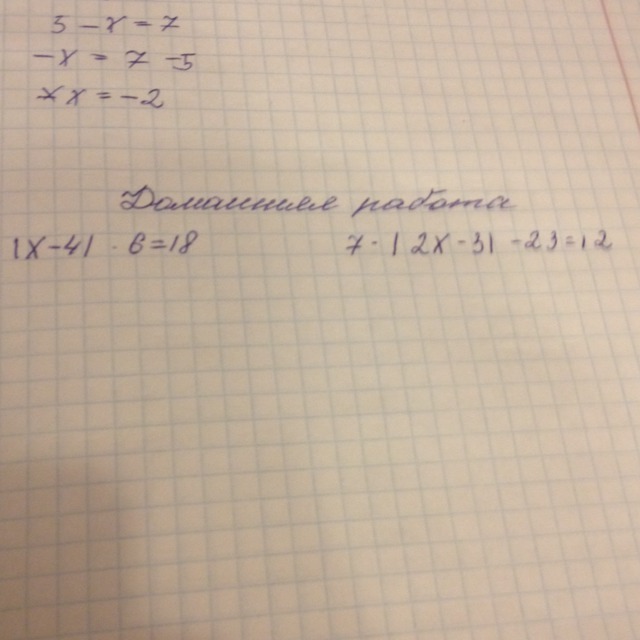 5 - x = 7
-x = 7 - 5
x = -2
Домашняя работа
|x-4| · 6 = 18
7 · |2x-3| - 23 = 12